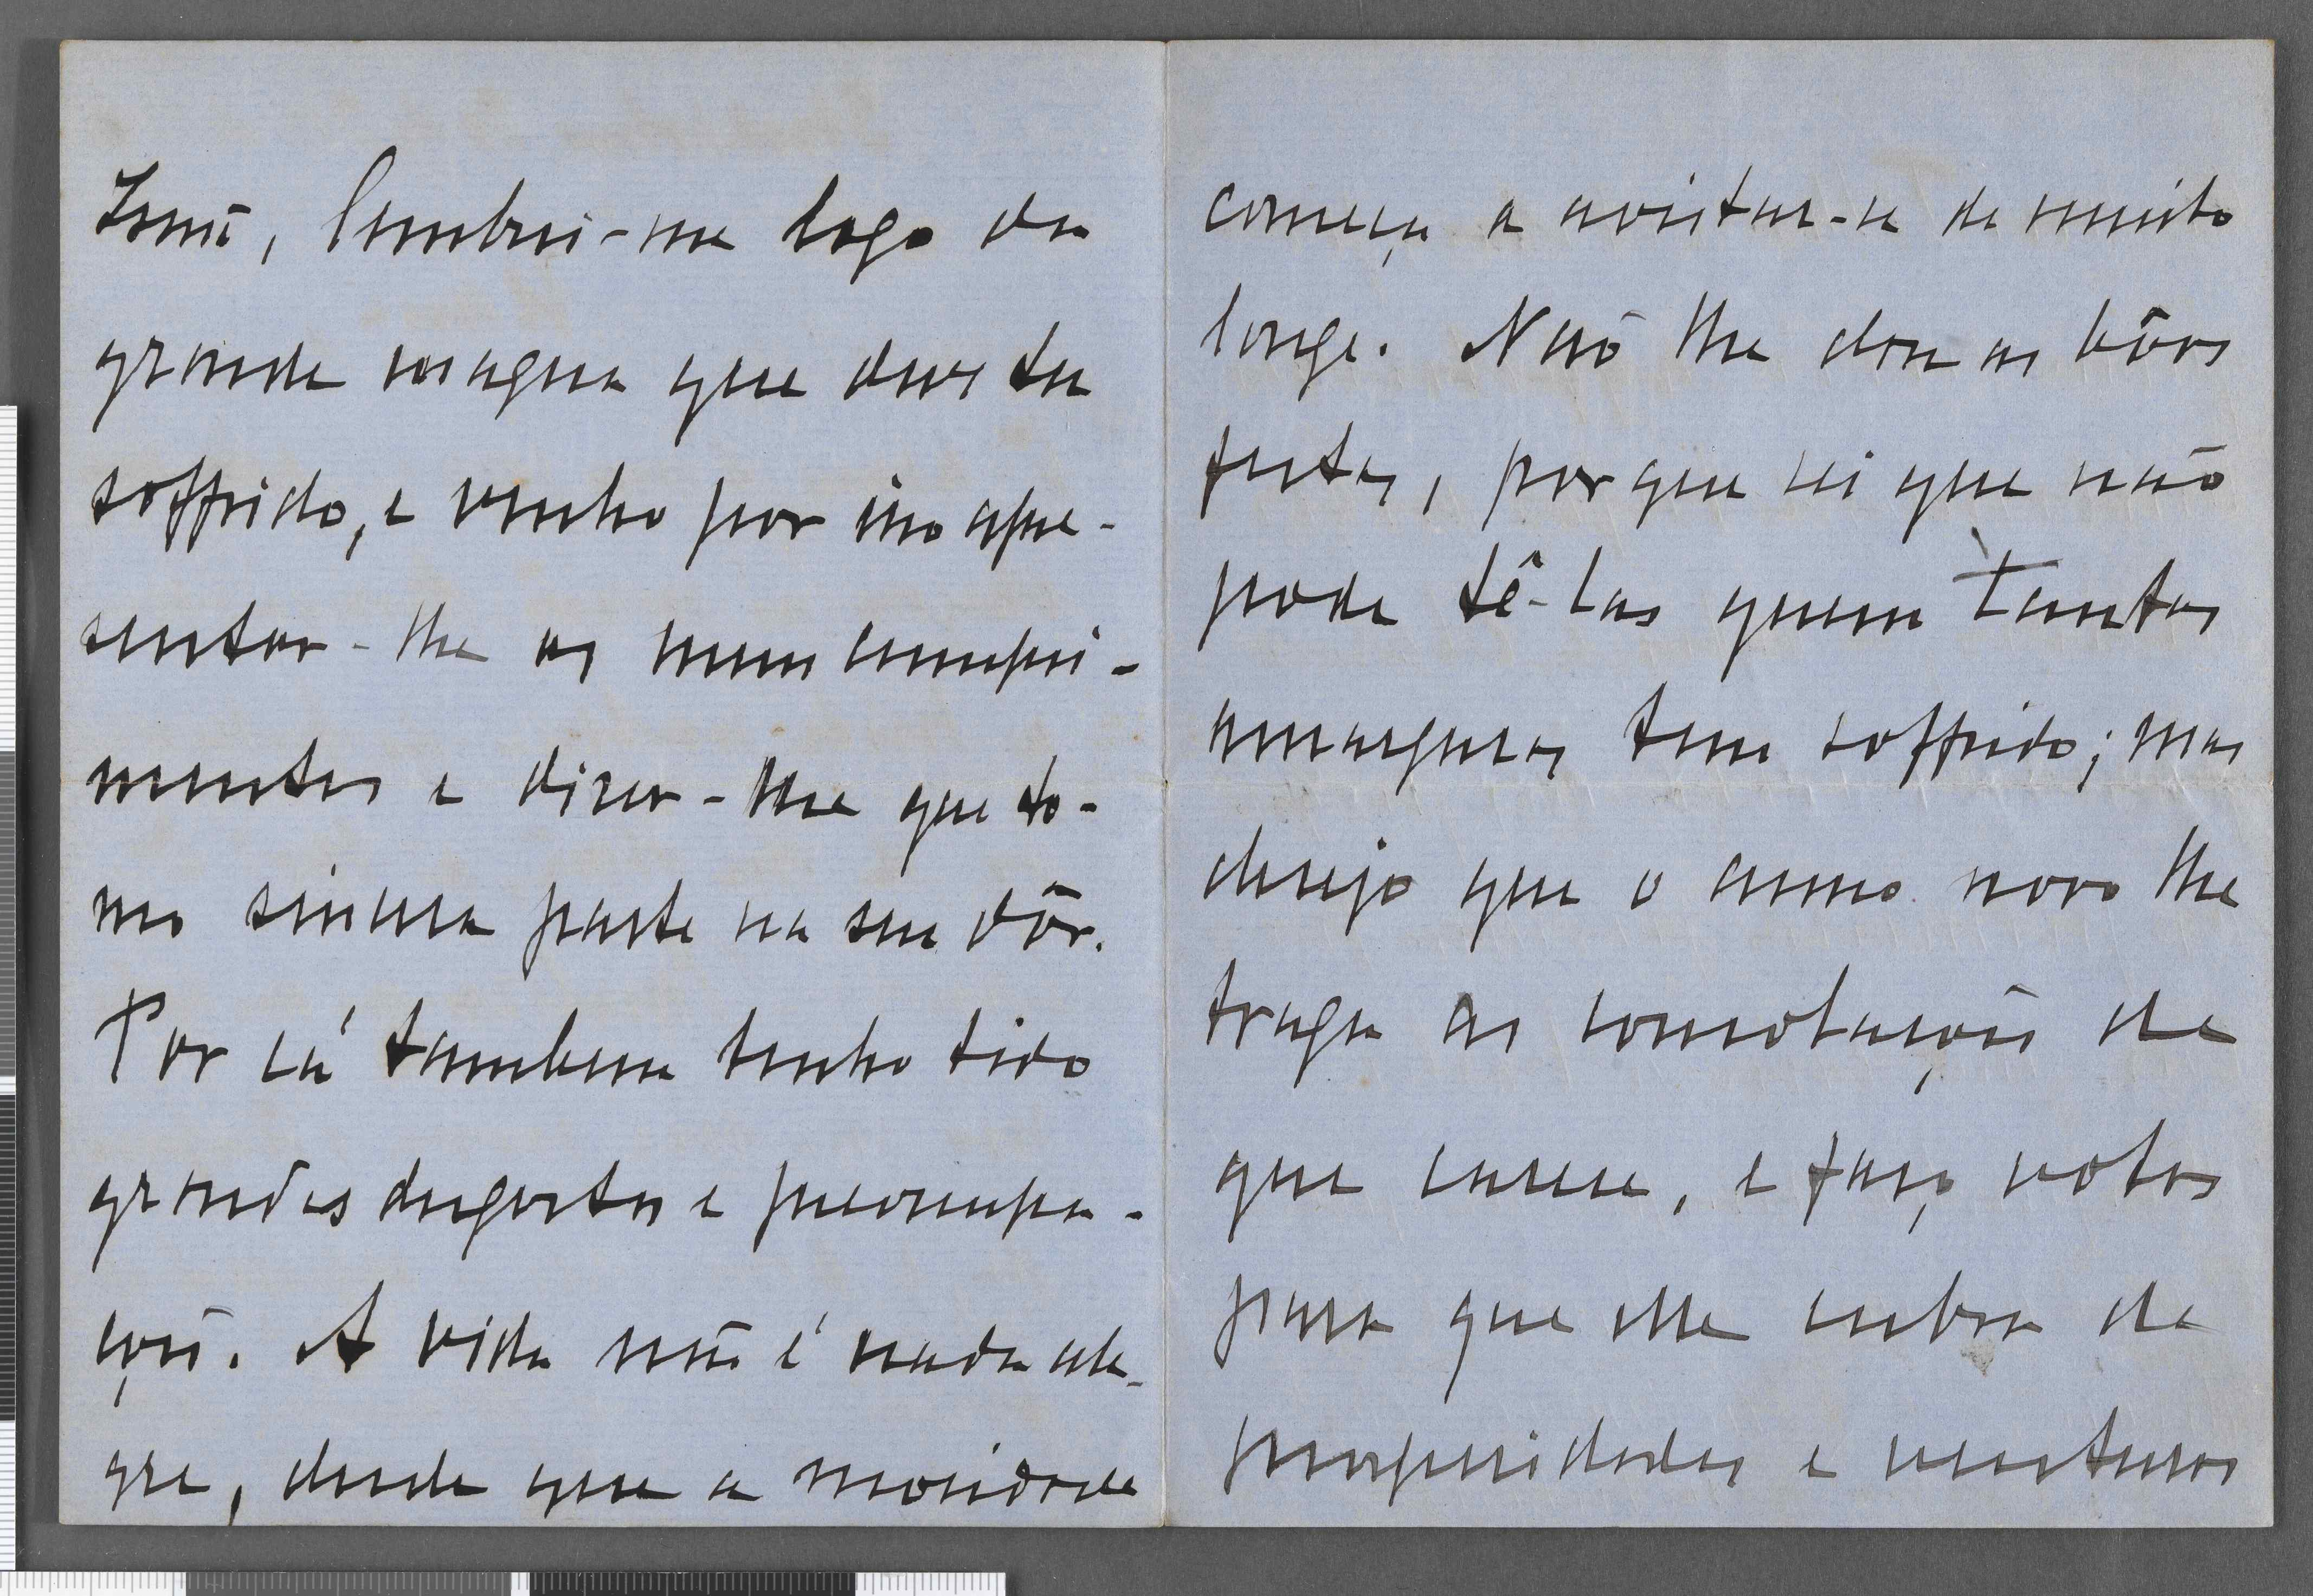 Irmã, lembrei-me logo da
grande magua que deve ter
soffrido, e venho por isso apre-
sentar-lhe os meus cumpri-
mentos e dizer-lhe que to-
mo sincera parte na sua dôr.
Por cá tambem tenho tido
grandes desgostos e preoccupa-
ções. A vida não é nada ale-
gre, desde que a mocidade
começa a avistar-se de muito
longe. Não lhe dou as bôas
festas, porque sei que não
pode tê-las quem tantas
amarguras tem soffrido; mas
desejo que o anno novo lhe
traga as consolações de
que carece, e faço votos
para que elle cubra de
prosperidades e venturas